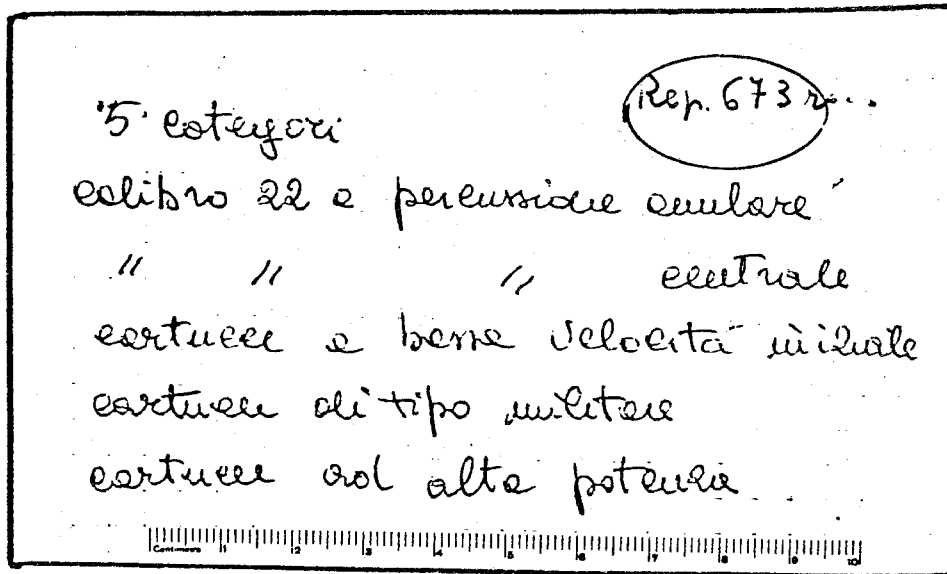 Rep. 673 r...
"5" categori
calibro 22 a percussione anulare
" " " centrale
cartucce a bassa velocità iniziale
cartucce di tipo militare
cartucce ad alta potenza
Centimetro 1 2 3 4 5 6 7 8 9 10